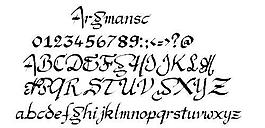 Argmansc
0123456789:;<=>?@
ABCDEFGHIJKLM
NOPQRSTUVWXYZ
abcdefghijklmnopqrstuvwxyz